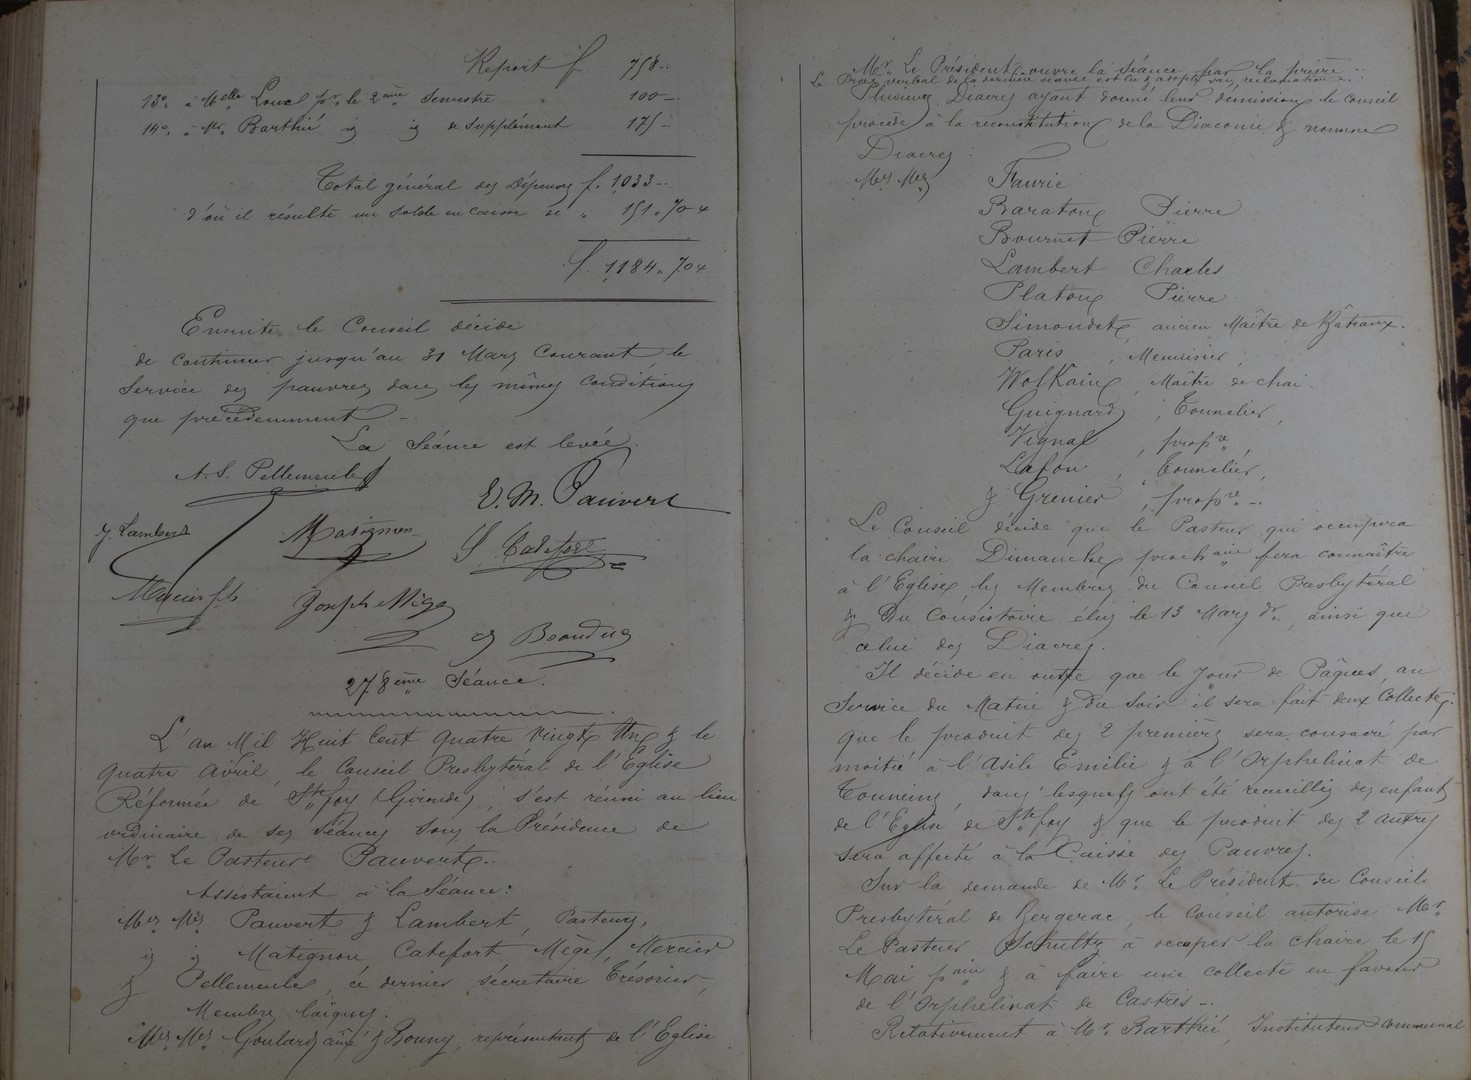 Report f 758 ..
13° à Melle Louel pr. le 2ème Semestre " 100 —
14° à Mr. Barthié id id de Supplément 175 —
Total général des Dépenses f. 1,033 —
d'où il résulte un solde en caisse de " 151.70 4
f. 1,184.70 4
Ensuite le Conseil décide
de continuer jusqu'au 31 Mars Courant le
Service des pauvres dans les mêmes conditions
que précédemment —.
La Séance est levée.
A. S. Pellemeule
E. M. Pauvert
J. Lambert Matignon
Mercier fils Joseph Mège
278ème Séance.
L'an Mil Huit Cent Quatre Vingt Un & le
Quatre Avril, le Conseil Presbytéral de l'Eglise
Réformée de Ste foy (Gironde), s'est réuni au lieu
ordinaire de ses Séances sous la Présidence de
Mr. Le Pasteur Pauvert..
Assistaient à la Séance:
Mrs Mrs Pauvert & Lambert, Pasteurs,
id id Matignon, Catefort, Mège, Mercier
& Pellemeule, ce dernier secrétaire Trésorier,
Membres laïques.
Mrs Mrs Goulard aîné & Bonny, représentants de l'Eglise
Mr. Le Président ouvre la séance par la prière..
Le Procès verbal de la dernière séance est lu & adopté sans réclamation.
Plusieurs Diacres ayant donné leur démission le Conseil
procède à la reconstitution de la Diaconie & nomme
Diacres
Mrs Mrs Faurie
Baratoux Pierre
Bournet Pierre
Lambert Charles
Platoux Pierre
Simondet, ancien Maître de Bâteaux.
Paris, Menuisier,
Wolkain, Maître de chai.
Guignard, Tonnelier,
Vignal, propre
Lafon, Tonnelier,
& Grenier, propre —.
Le Conseil décide que le Pasteur qui occupera
la chaire Dimanche prochain fera connaître
à l'Eglise, les Membres du Conseil Presbytéral
& du Consistoire élus le 13 Mars dr, ainsi que
celui des Diacres.
Il décide en outre que le Jour de Pâques, au
Service du Matin & du Soir il sera fait deux Collectes;
que le produit des 2 premières sera consacré par
moitié à l'Asile Emilie & à l'Orphelinat de
Tonneins, dans lesquels ont été recueillis des enfants
de l'Eglise de Ste foy & que le produit des 2 autres
sera affecté à la Caisse des Pauvres.
Sur la demande de Mr. Le Président du Conseil
Presbytéral de Bergerac, le Conseil autorise Mr.
Le Pasteur Schultz à occuper la chaire le 15
Mai pain & à faire une collecte en faveur
de l'Orphelinat de Castres —.
Relativement à Mr. Barthié, Instituteur Communal